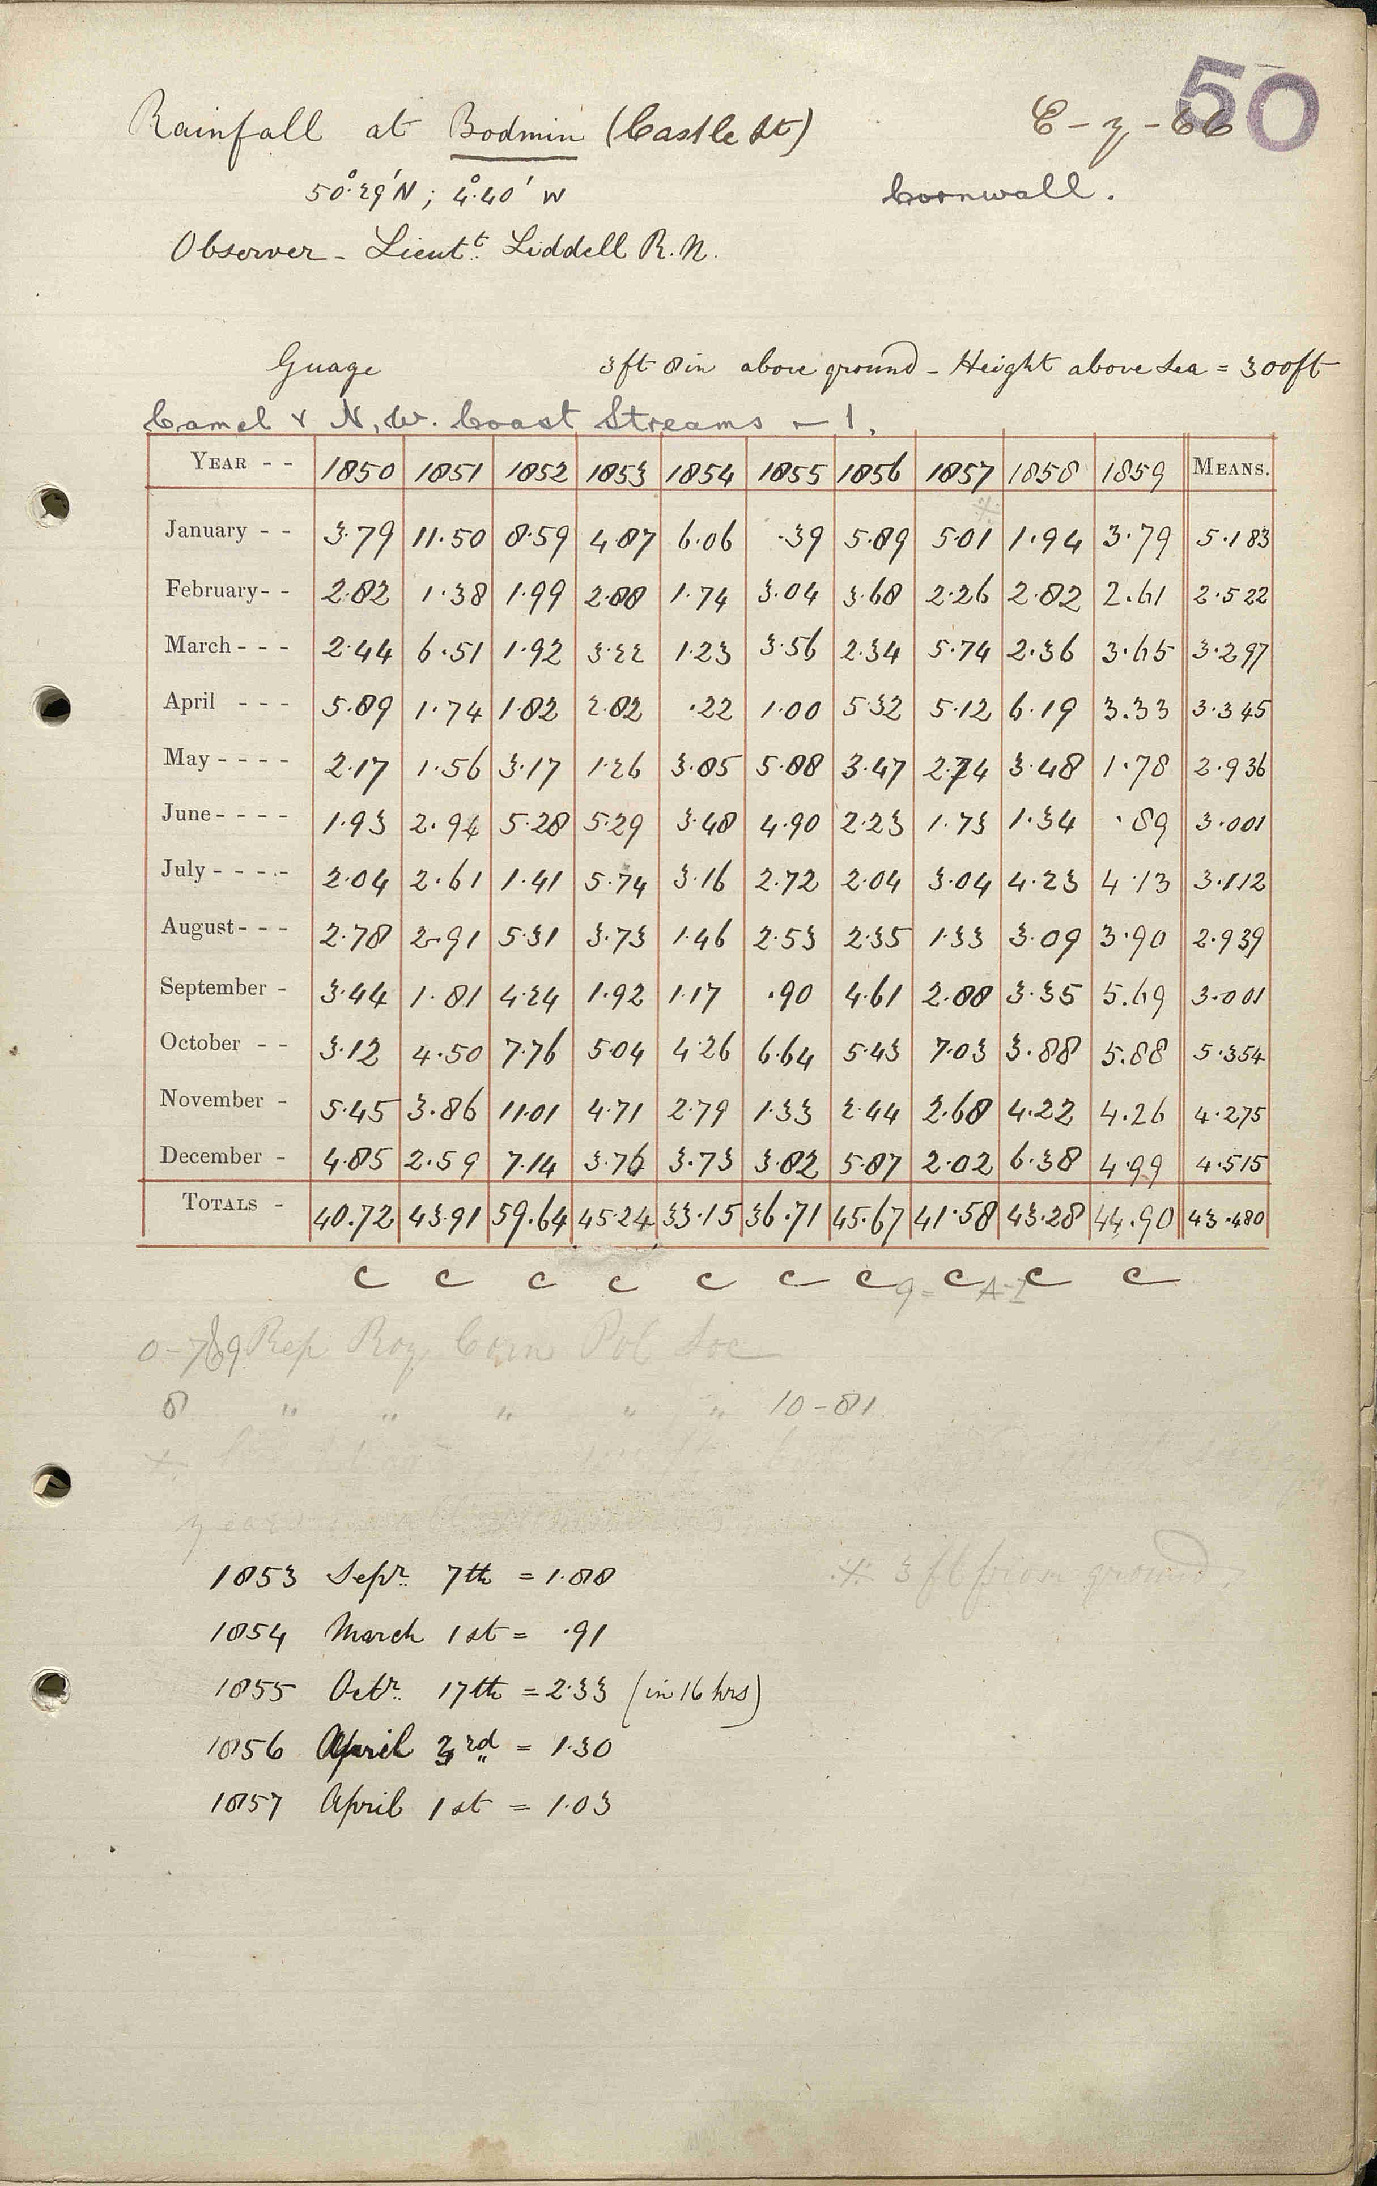 50
Rainfall at Bodmin (Castle St)
Cornwall.
50°.29'N ; 4°.40' W
Observer - Lieutt. Liddell R.N.
Guage 3ft 8in above ground - Height above Sea = 300ft
Camel & N.W. Coast Streams - 1.
YEAR - - 1850 1851 1852 1853 1854 1855 1856 1857 1858 1859 MEANS.
January - - 3.79 11.50 8.59 4.87 6.06 .39 5.89 5.01 1.94 3.79 5.183
February - - 2.82 1.38 1.99 2.88 1.74 3.04 3.68 2.26 2.82 2.61 2.522
March - - - 2.44 6.51 1.92 3.22 1.23 3.56 2.34 5.74 2.36 3.65 3.297
April - - - 5.89 1.74 1.82 2.82 .22 1.00 5.32 5.12 6.19 3.33 3.345
May - - - - 2.17 1.56 3.17 1.26 3.85 5.88 3.47 2.74 3.48 1.78 2.936
June - - - - 1.93 2.94 5.28 5.29 3.48 4.90 2.23 1.73 1.34 .89 3.001
July - - - - 2.04 2.61 1.41 5.74 3.16 2.72 2.04 3.04 4.23 4.13 3.112
August - - - 2.78 2.91 5.31 3.73 1.46 2.53 2.35 1.33 3.09 3.90 2.939
September - 3.44 1.81 4.24 1.92 1.17 .90 4.61 2.88 3.35 5.69 3.001
October - - 3.12 4.50 7.76 5.04 4.26 6.64 5.43 7.03 3.88 5.88 5.354
November - 5.45 3.86 11.01 4.71 2.79 1.33 2.44 2.68 4.22 4.26 4.275
December - 4.85 2.59 7.14 3.76 3.73 3.82 5.87 2.02 6.38 4.99 4.515
TOTALS - 40.72 43.91 59.64 45.24 33.15 36.71 45.67 41.58 43.28 44.90 43.480
C C C C C C C C C C
Rep Roy Corn Pol Soc
8 " " " " " 10-81
years
1853 Sepr. 7th = 1.88
※ 3 ft from ground.
1854 March 1st = .91
1855 Octr. 17th = 2.33 (in 16 hrs)
1856 April 3rd = 1.30
1857 April 1st = 1.03